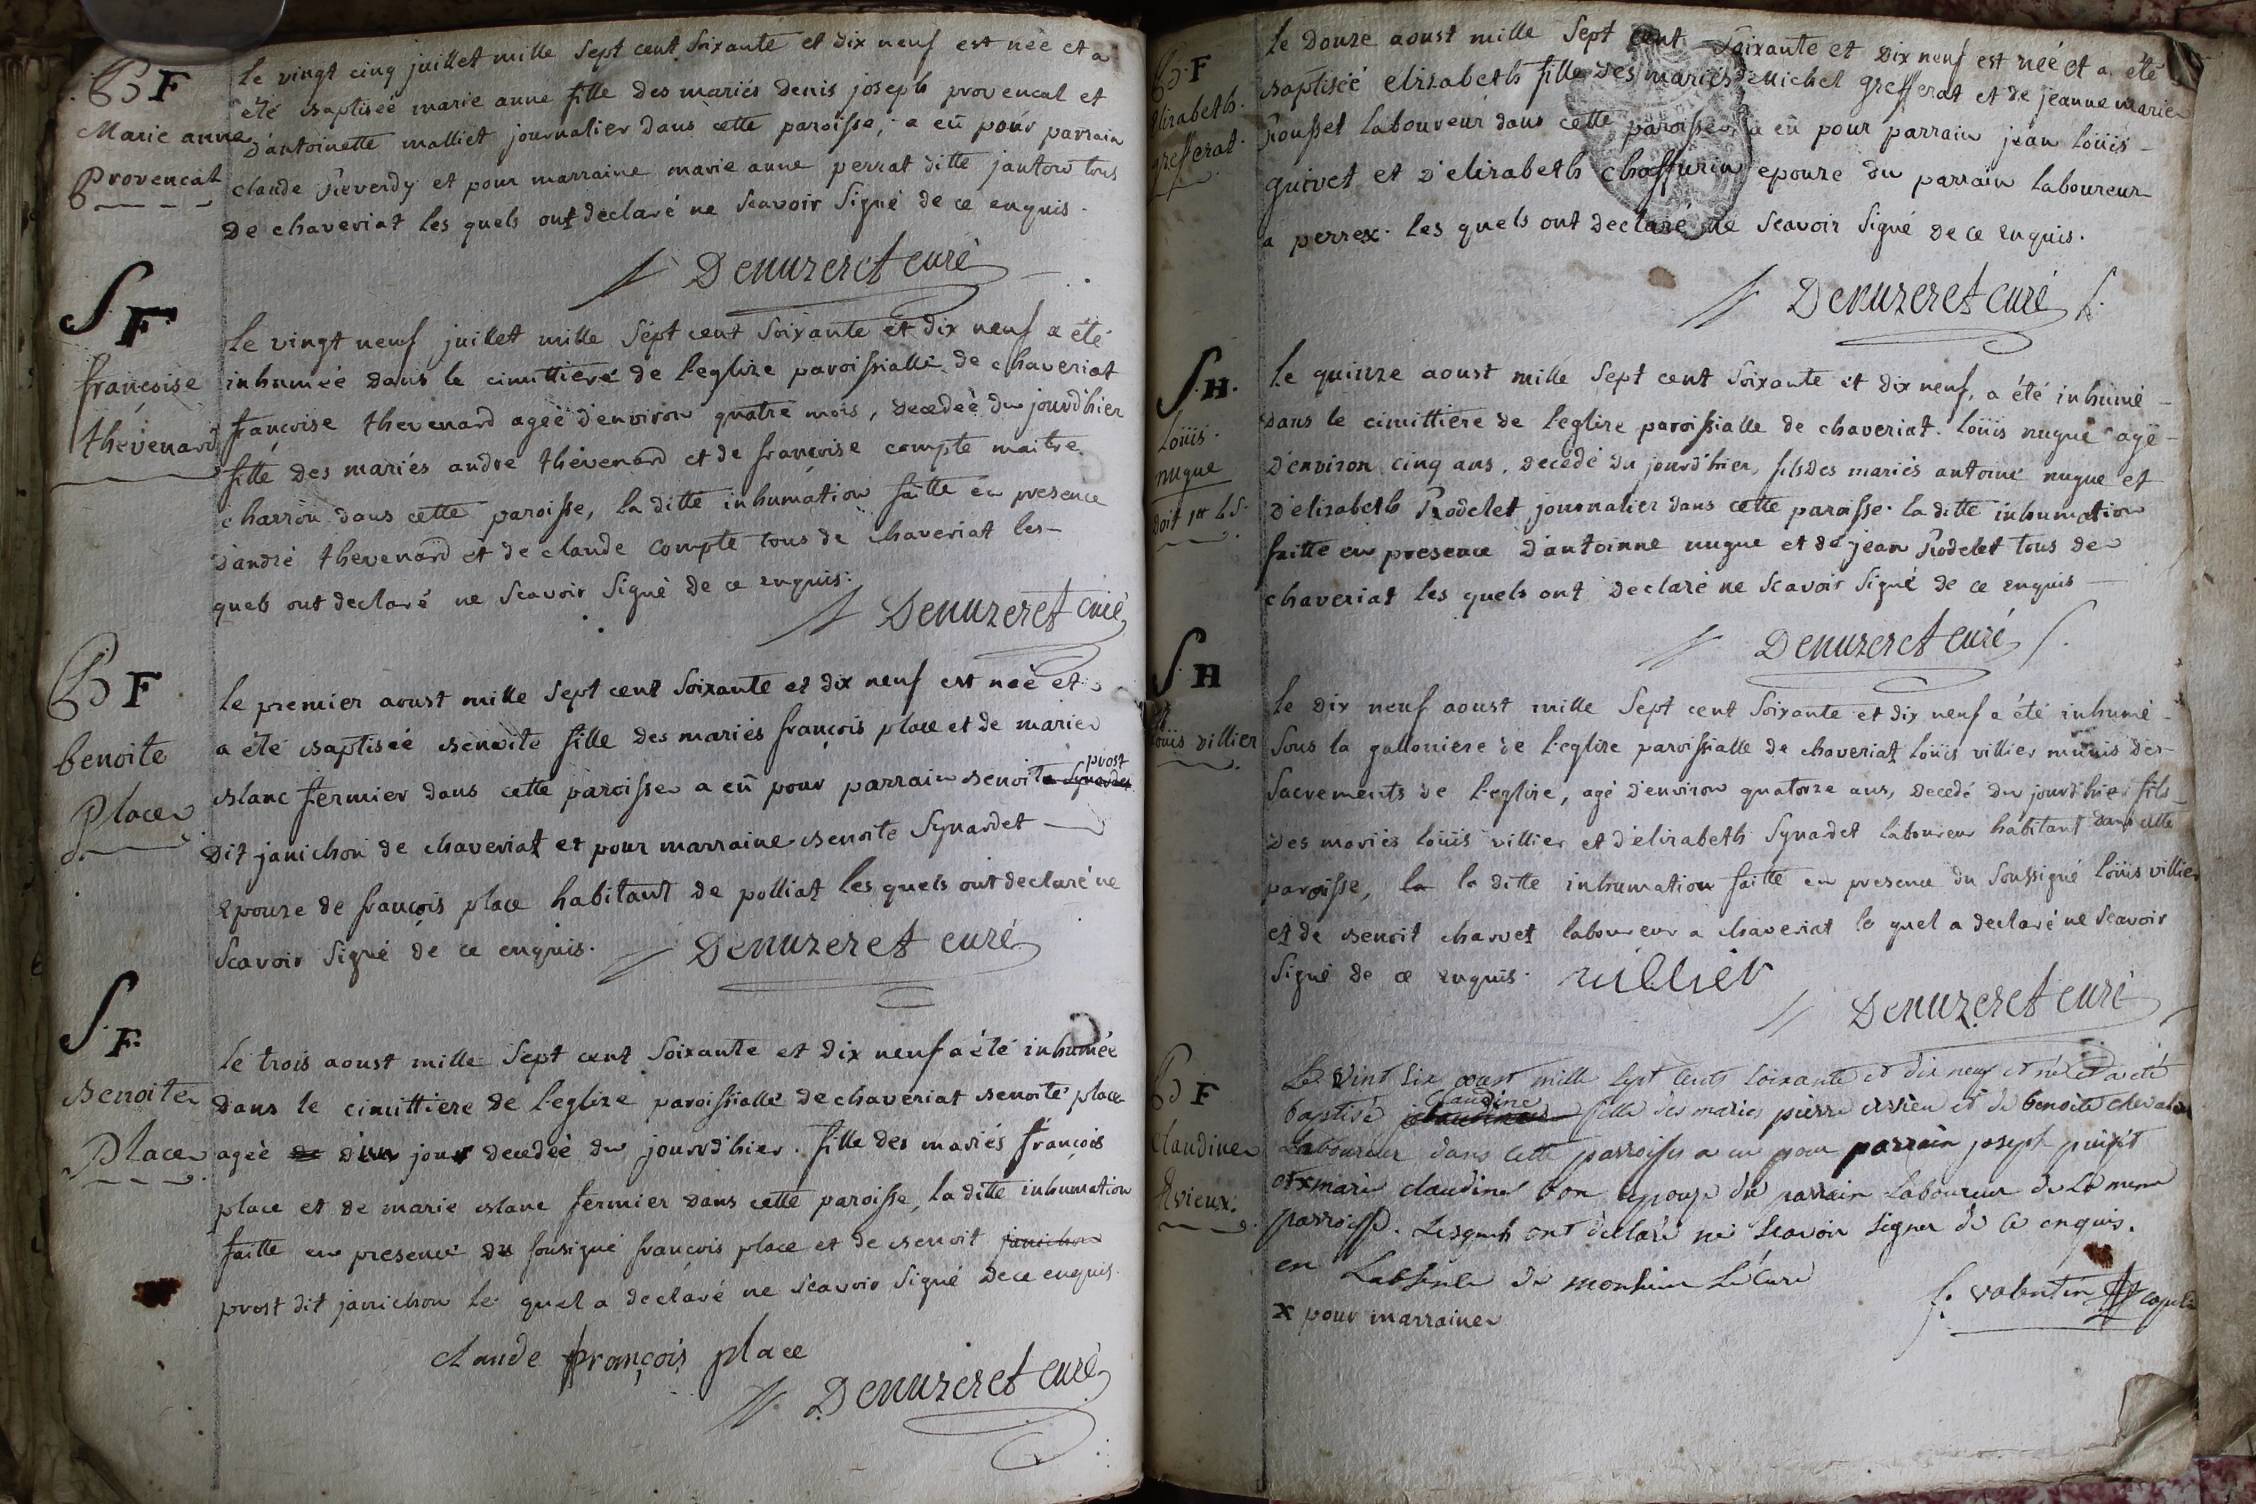 B F
Marie anne
Provencal
le vingt cinq juillet mille Sept cent Soixante et dix neuf est née et a
été baptiseé marie anne fille des mariés denis joseph provencal et
d'antoinette malliet journalier dans cette paroisse, a eü pour parrain
claude Reverdy et pour marraine marie anne perrat ditte janton tous
de chaveriat les quels ont declaré ne Scavoir Signé de ce enquis.
Denuzeret curé
S F
françoise
thévenard
le vingt neuf juillet mille Sept cent Soixante et dix neuf a été
inhumeé dans le cimittiere de l'eglize paroissialle de chaveriat
françoise thevenard ageé d'environ quatre mois, decedeé du jourd'hier
fille des mariés andre thévenard et de françoise compte maitre
charron dans cette paroisse, la ditte inhumation faitte en presence
d'andré thevenard et de claude compte tous de chaveriat les
quels ont declaré ne Scavoir Signé de ce enquis.
Denuzeret curé
B F
benoite
place
le premier aoust mille Sept cent Soixante et dix neuf est neé et
a été baptiseé benoite fille des mariés françois place et de marie
blanc fermier dans cette paroisse a eü pour parrain benoit prost
dit janichon de chaveriat et pour marraine benoite Synardet
epouze de françois place habitant de polliat les quels ont declaré ne
Scavoir Signé de ce enquis.
Denuzeret curé
S F.
benoite
place
le trois aoust mille Sept cent Soixante et dix neuf a été inhumée
dans le cimittiere de l'eglize paroissialle de chaveriat benoite place
ageé de d'un jour decedeé du jourd'hier. fille des mariés françois
place et de marie blanc fermier dans cette paroisse, la ditte inhumation
faitte en presence du sousigné françois place et de benoit janichon
prost dit janichon le quel a declaré ne Scavoir Signé de ce enquis.
claude françois place
Denuzeret curé
B. F
elizabeth
grefferat
le douze aoust mille Sept cent Soixante et dix neuf est neé et a été
baptiseé elizabeth fille des mariés de michel grefferat et de jeanne marie
Rousset laboureur dans cette paroisse, a eü pour parrain jean loüis
guivet et d'elizabeth chaffurin epouze du parrain laboureur
a perrex. les quels ont declaré ne Scavoir Signé de ce enquis.
Denuzeret curé
S. H.
Loüis
nugue
le quinze aoust mille Sept cent Soixante et dix neuf, a été inhumé
dans le cimittiere de l'eglize paroissialle de chaveriat. loüis nugue agé
d'environ cinq ans, decédé du jourd'hier, fils des mariés antoine nugue et
d'elizabeth Rodelet journalier dans cette paroisse. la ditte inhumation
faitte en presence d'antoinne nugue et de jean Rodelet tous de
chaveriat les quels ont declaré ne Scavoir Signé de ce enquis
Denuzeret curé
S. H
loüis villier
le dix neuf aoust mille Sept cent Soixante et dix neuf a été inhumé
Sous la galloniere de l'eglize paroissialle de chaveriat loüis villier munis des
Sacrements de l'eglize, agé d'environ quatorze ans, decedé du jourd'hier fils
des mariés loüis villier et d'elizabeth Synardet laboureur habitant dans cette
paroisse, la la ditte inhumation faitte en presence du Soussigné loüis villier
et de benoit charvet laboureur a chaveriat le quel a declaré ne Scavoir
Signé de ce enquis. villier
Denuzeret curé
B F
Claudine
Ervieux
Le vint six aoust mille sept cents soixante et dix neuf et né et a eté
baptisé claudine fille des maries pierre ervieu et de benoite chevalier
Laboureur dans cette parroisse a eu pour parrain joseph
et x marie claudine epouse du parrain Laboureur de La meme
parroisse. Lesquels ont declaré ne Scavoir signer de ce enquis.
en L'absence de monsieur Le Curé
f. valentin
x pour marraine